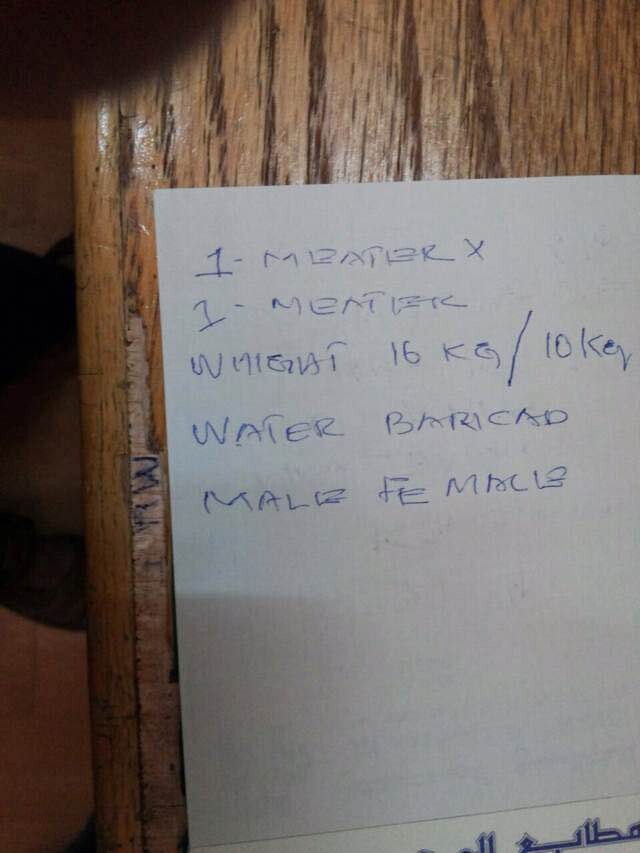 1- MEATER X
1- MEATER
WHIGHT 16 KG / 10 Kg
WATER BARICAD
MALE FE MALE
مطابع